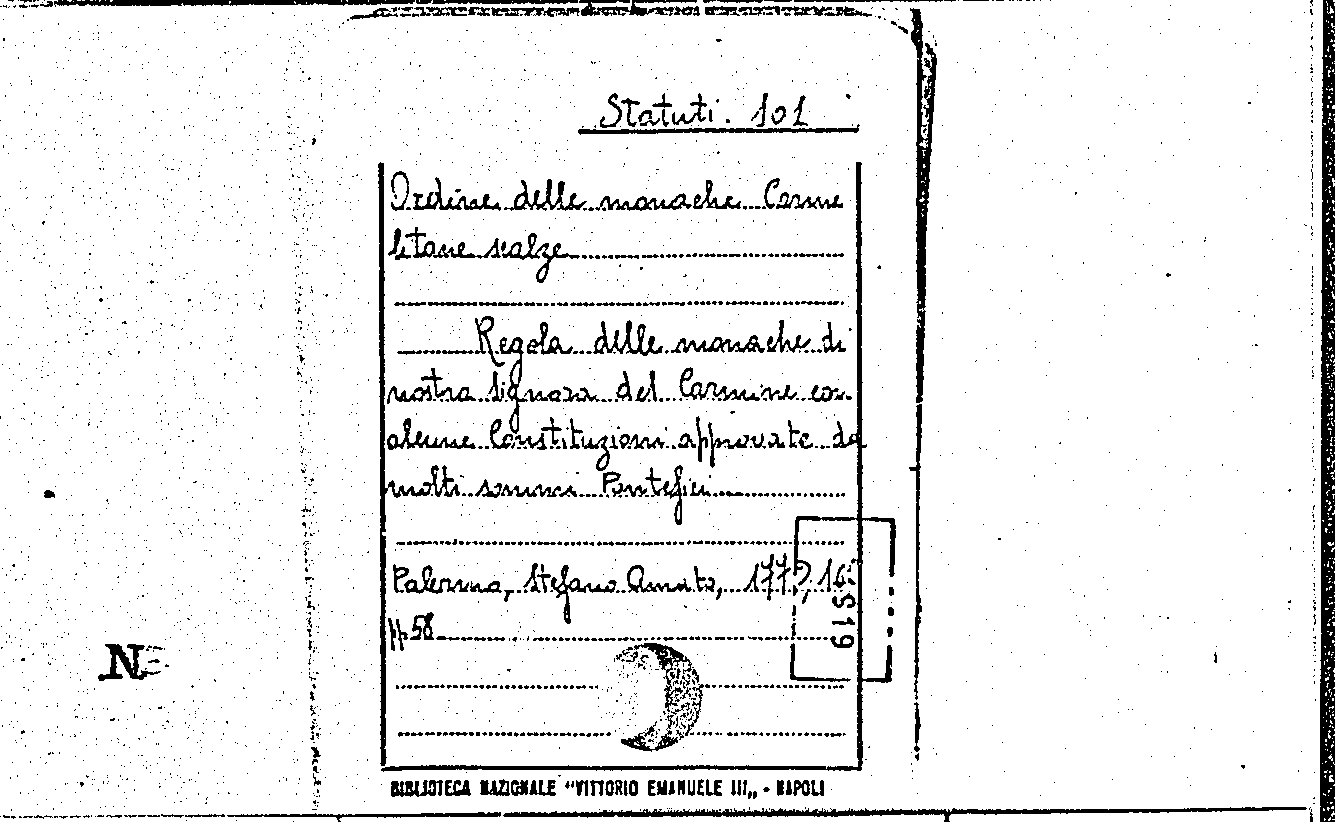 Statuti. 101
Ordine delle monache Carme
litane scalze
Regola delle monache di
nostra Signora del Carmine con
alcune Constituzioni approvate da
molti sommi Pontefici
Palermo, Stefano Amato, 1772, 16°
pp. 58
S19
N
BIBLIOTECA NAZIONALE "VITTORIO EMANUELE III„ - NAPOLI